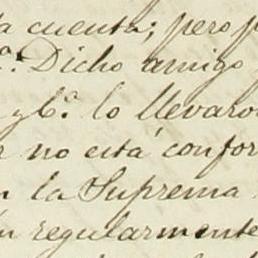 a cuenta; pero p
º. Dicho amigo
y Cª. lo llevaro
r no está confor
la Suprema
n regularmente